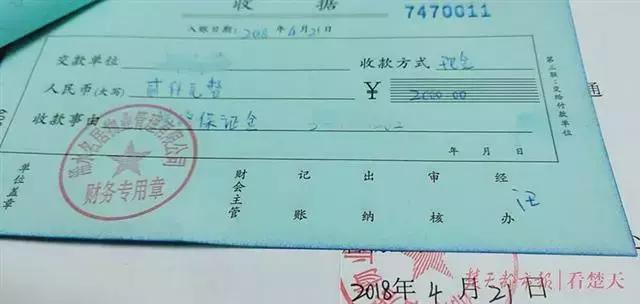 收 据
7470011
入账日期:2018 年 4 月 21 日
交款单位
收款方式 现金
人民币(大写) 贰仟元整
¥ 2000.00
收款事由 保证金
年 月 日
第三联:交给付款单位
单位盖章
财会主管
记账
出纳
审核
经办 汪
名居物业管理有限公司
财务专用章
通
2018年 4 月 21 日
楚天都市报|看楚天